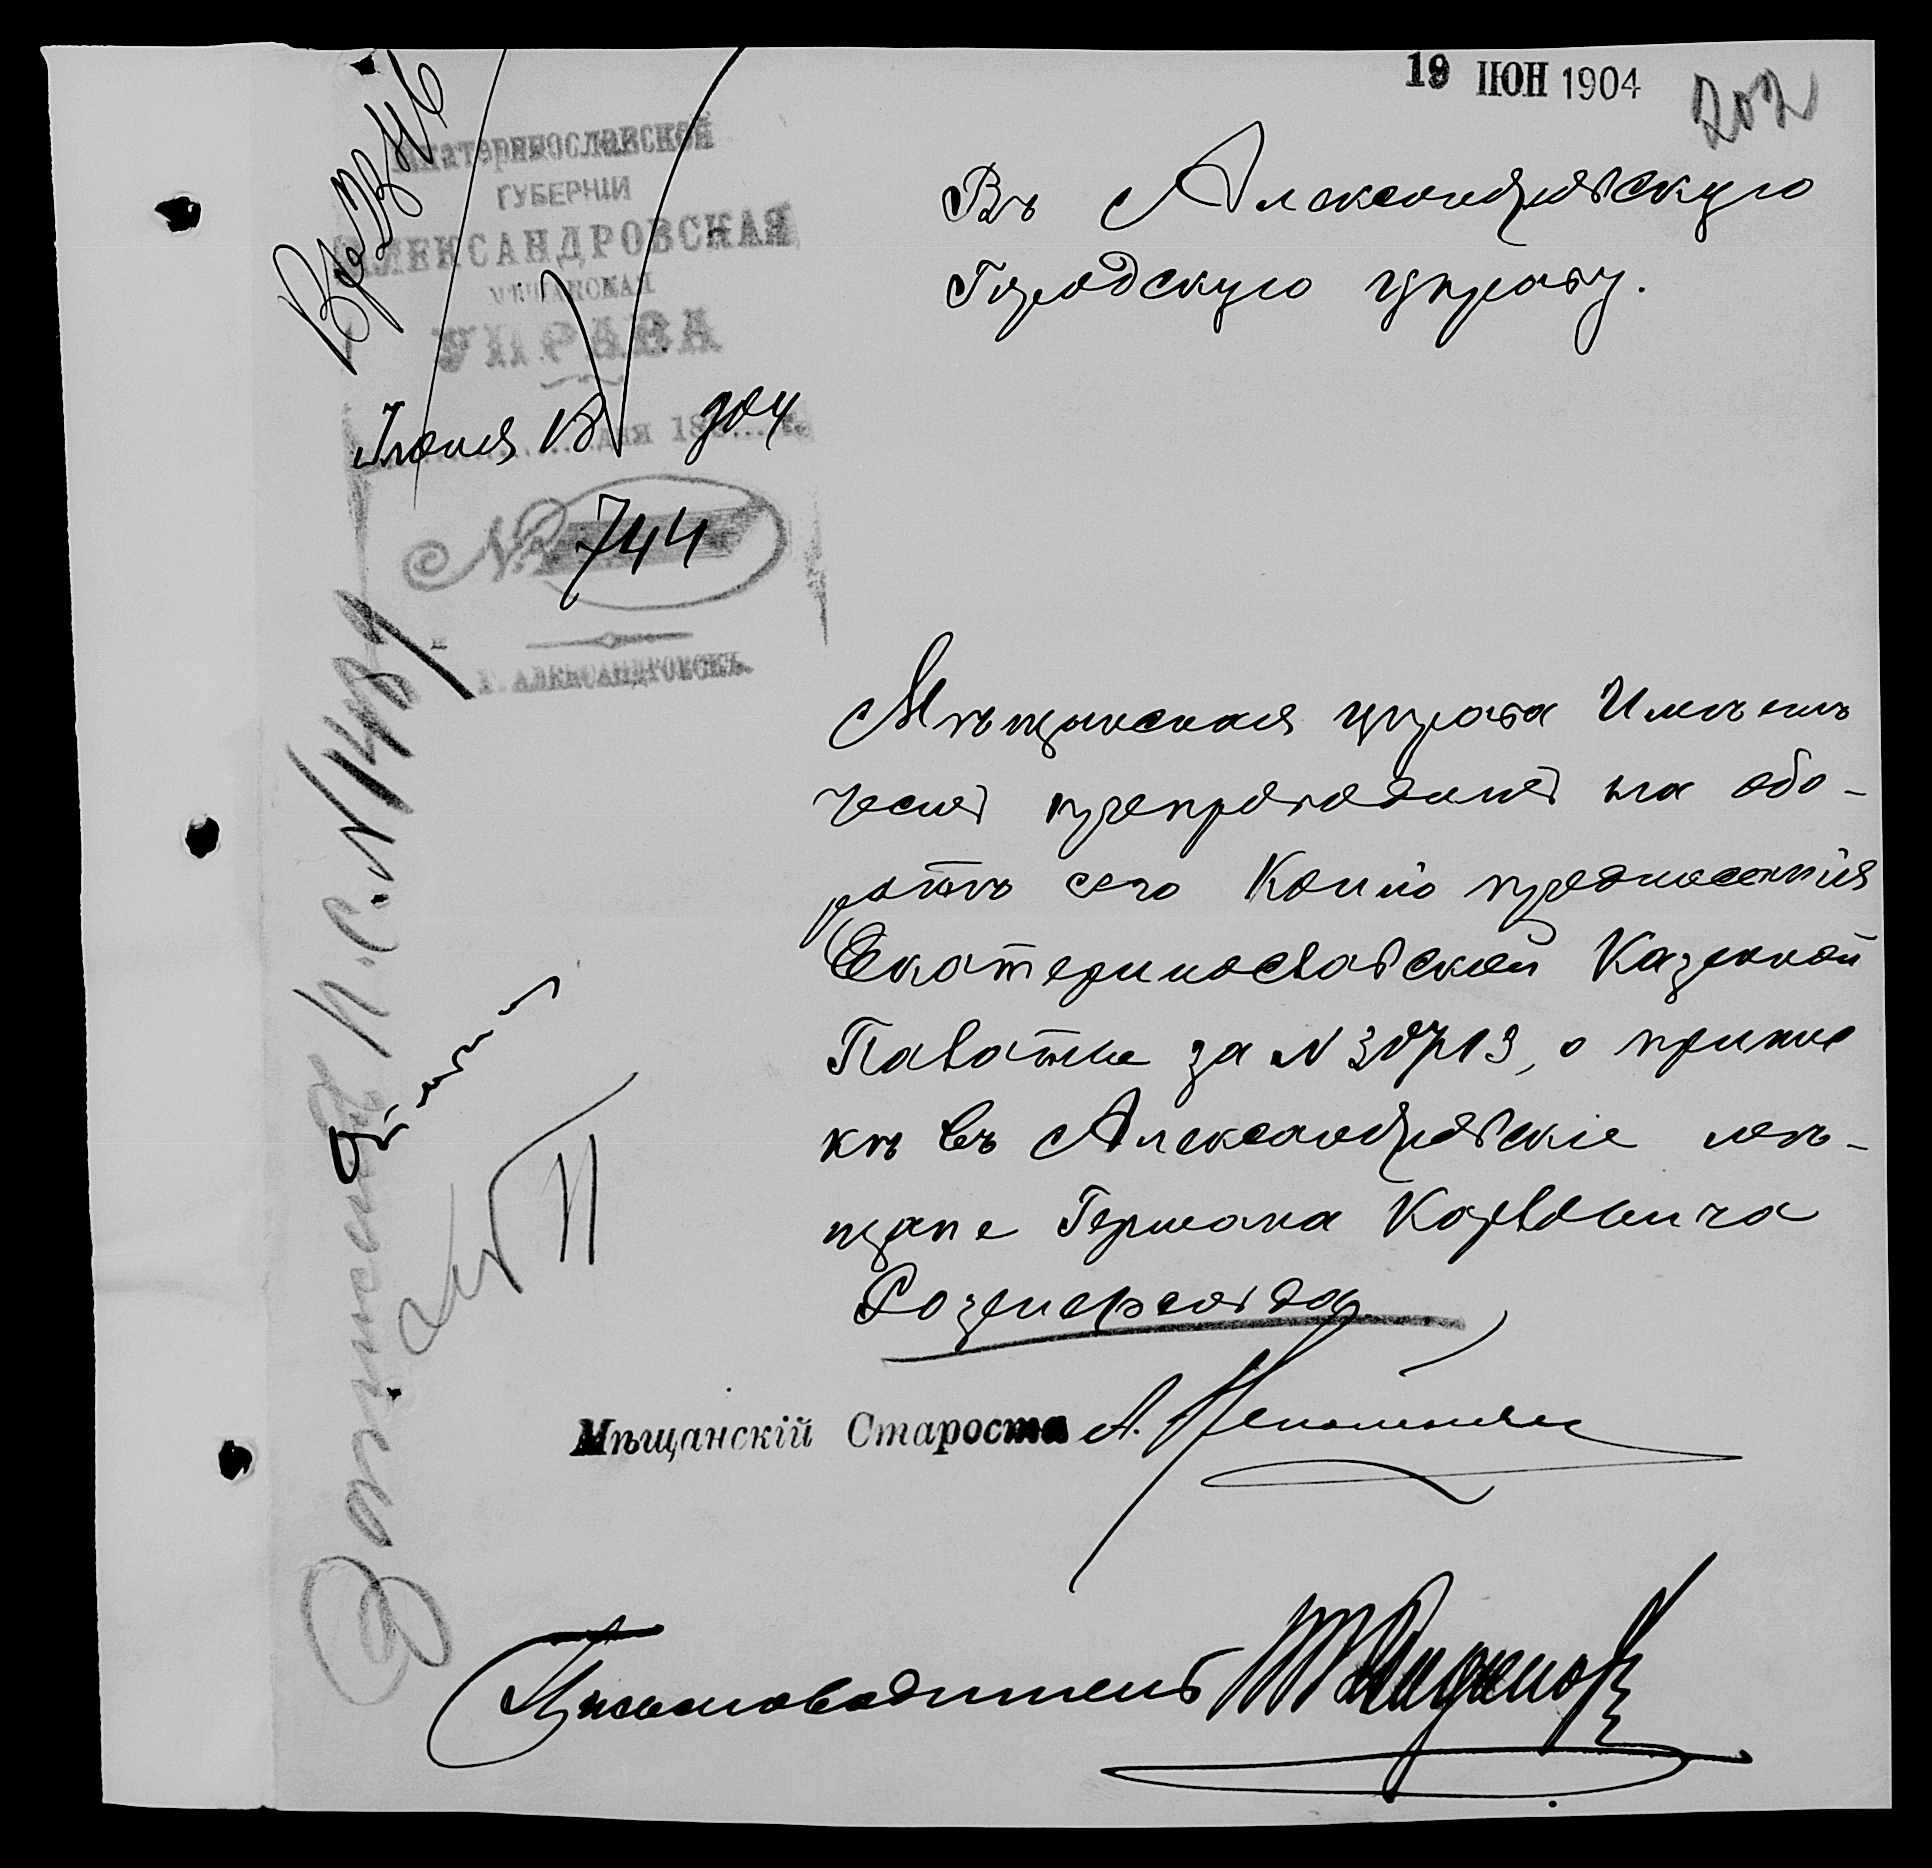 19 ІЮН 1904
202
Екатеринославской
ГУБЕРНІИ
АЛЕКСАНДРОВСКАЯ
МѢЩАНСКАЯ
УПРАВА
Іюня 18 дня 904
№ 744
Г. АЛЕКСАНДРОВСКЪ.
Въ Александровскую
Городскую управу.
Мѣщанская управа Имѣетъ
честь препроводить на обо-
ротѣ сего Копію предложенія
Екатеринославской Казенной
Палаты за N 30713, о припис
кѣ въ Александровскіе мѣ-
щане Германа Карловича
Розенфельда.
Мѣщанскій Староста А.
Письмоводитель
П.С. N 1489